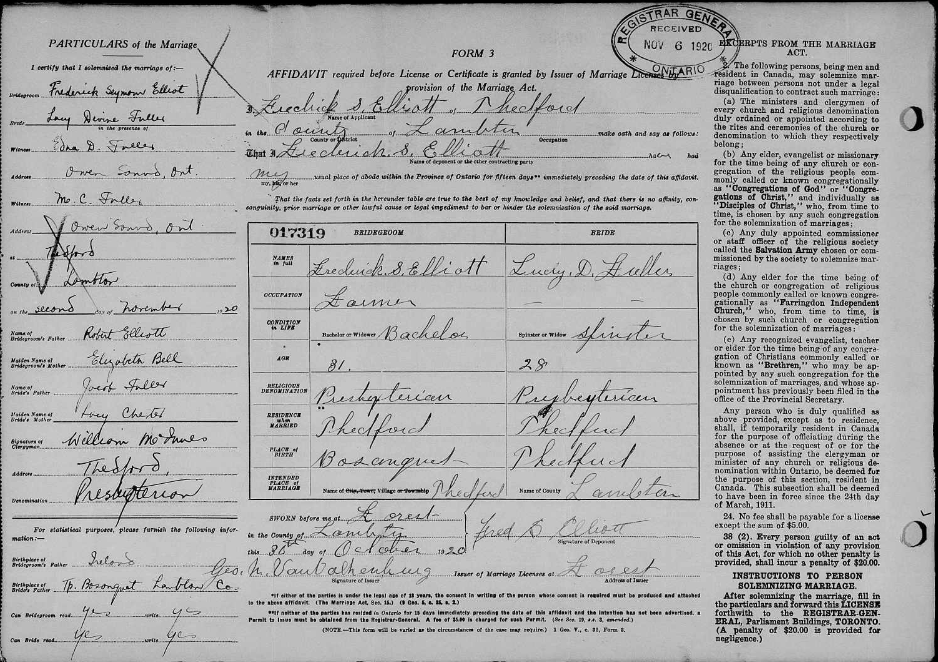 PARTICULARS of the Marriage
I certify that I solemnized the marriage of:—
Bridegroom Frederick Seymour Elliot
Bride Lucy Divine Fuller
in the presence of
Witness Edna D. Fuller
Address Owen Sound, Ont.
Witness M. C. Fuller
Address Owen Sound, Ont
at Thedford
County of Lambton
on the second day of November 1920
Name of Bridegroom's Father Robert Elliott
Maiden Name of Bridegroom's Mother Elizabeth Bell
Name of Bride's Father Fuller
Maiden Name of Bride's Mother Lucy Chester
Signature of Clergyman William McInnes
Address Thedford,
Denomination Presbyterian
For statistical purposes, please furnish the following information:—
Birthplace of Bridegroom's Father Ireland
Birthplace of Bride's Father Tp. Bosanquet Lambton Co.
Can Bridegroom read yes write yes
Can Bride read yes write yes
REGISTRAR GENERAL
RECEIVED
NOV 6 1920
ONTARIO
FORM 3
AFFIDAVIT required before License or Certificate is granted by Issuer of Marriage Licenses by
provision of the Marriage Act.
I, Fredrick S. Elliott of Thedford
Name of Applicant
in the County of Lambton make oath and say as follows:
County or District Occupation
That I Frederick. S. Elliott had
Name of deponent or the other contracting party
my usual place of abode within the Province of Ontario for fifteen days** immediately preceding the date of this affidavit.
my, his or her
That the facts set forth in the hereunder table are true to the best of my knowledge and belief, and that there is no affinity, consanguinity, prior marriage or other lawful cause or legal impediment to bar or hinder the solemnization of the said marriage.
017319 BRIDEGROOM BRIDE
NAMES in full Fredrick. S. Elliott Lucy. D. Fuller
OCCUPATION Farmer — —
CONDITION IN LIFE Bachelor or Widower Bachelor Spinster or Widow spinster
AGE 31. 28
RELIGIOUS DENOMINATION Presbyterian Presbyterian
RESIDENCE when MARRIED Thedford Thedford
PLACE OF BIRTH Bosanquet Thedford
INTENDED PLACE OF MARRIAGE Name of City, Town, Village or Township Thedford Name of County Lambton
SWORN before me at Forest
in the County of Lambton
this 30th day of October 1920
Fred S Elliott
Signature of Deponent
Geo. N. VanValkenburg Issuer of Marriage Licenses at Forest
Signature of Issuer Address of Issuer
*If either of the parties is under the legal age of 18 years, the consent in writing of the person whose consent is required must be produced and attached
to the above affidavit. (The Marriage Act, Sec. 15.)
**If neither of the parties has resided in Ontario for 15 days immediately preceding the date of this affidavit and the intention has not been advertised, a
Permit to Issue must be obtained from the Registrar-General. A fee of $5.00 is charged for such Permit. (See Sec. 19, amended.)
(NOTE.—This form will be varied as the circumstances of the case may require.) 1 Geo. V., c. 32, Form 3.
EXCERPTS FROM THE MARRIAGE
ACT.
2. The following persons, being men and
resident in Canada, may solemnize marriage between persons not under a legal
disqualification to contract such marriage:
(a) The ministers and clergymen of
every church and religious denomination
duly ordained or appointed according to
the rites and ceremonies of the church or
denomination to which they respectively
belong;
(b) Any elder, evangelist or missionary
for the time being of any church or congregation of the religious people commonly called or known congregationally
as "Congregations of God" or "Congregations of Christ," and individually as
"Disciples of Christ," who, from time to
time, is chosen by any such congregation
for the solemnization of marriages;
(c) Any duly appointed commissioner
or staff officer of the religious society
called the Salvation Army chosen or commissioned by the society to solemnize marriages;
(d) Any elder for the time being of
the church or congregation of religious
people commonly called or known congregationally as "Farringdon Independent
Church," who, from time to time, is
chosen by such church or congregation
for the solemnization of marriages;
(e) Any recognized evangelist, teacher
or elder for the time being of any congregation of Christians commonly called or
known as "Brethren," who may be appointed by any such congregation for the
solemnization of marriages, and whose appointment has previously been filed in the
office of the Provincial Secretary.
Any person who is duly qualified as
above provided, except as to residence,
shall, if temporarily resident in Canada
for the purpose of officiating during the
absence or at the request of or for the
purpose of assisting the clergyman or
minister of any church or religious denomination within Ontario, be deemed
for the purpose of this section, resident in
Canada. This subsection shall be deemed
to have been in force since the 24th day
of March, 1911.
24. No fee shall be payable for a license
except the sum of $5.00.
38 (2). Every person guilty of an act
or omission in violation of any provision
of this Act, for which no other penalty is
provided, shall incur a penalty of $20.00.
INSTRUCTIONS TO PERSON
SOLEMNIZING MARRIAGE.
After solemnizing the marriage, fill in
the particulars and forward this LICENSE
forthwith to the REGISTRAR-GENERAL, Parliament Buildings, TORONTO.
(A penalty of $20.00 is provided for
negligence.)